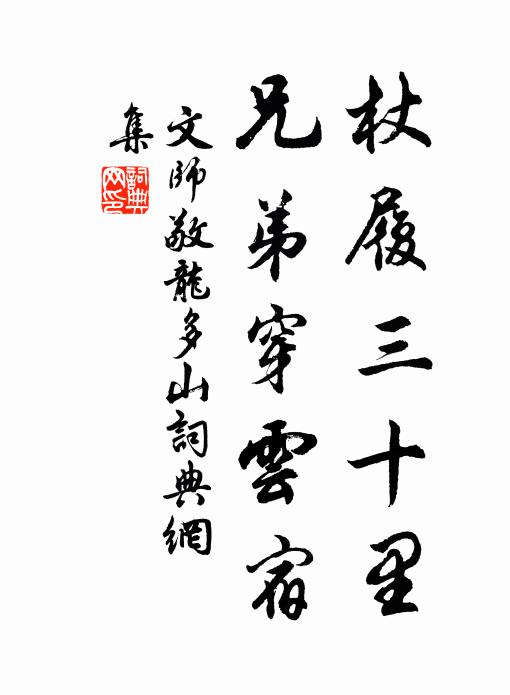 杖履三十里
兄弟穿雲宿
文師敬龍多山詞典網
集
詞典網印